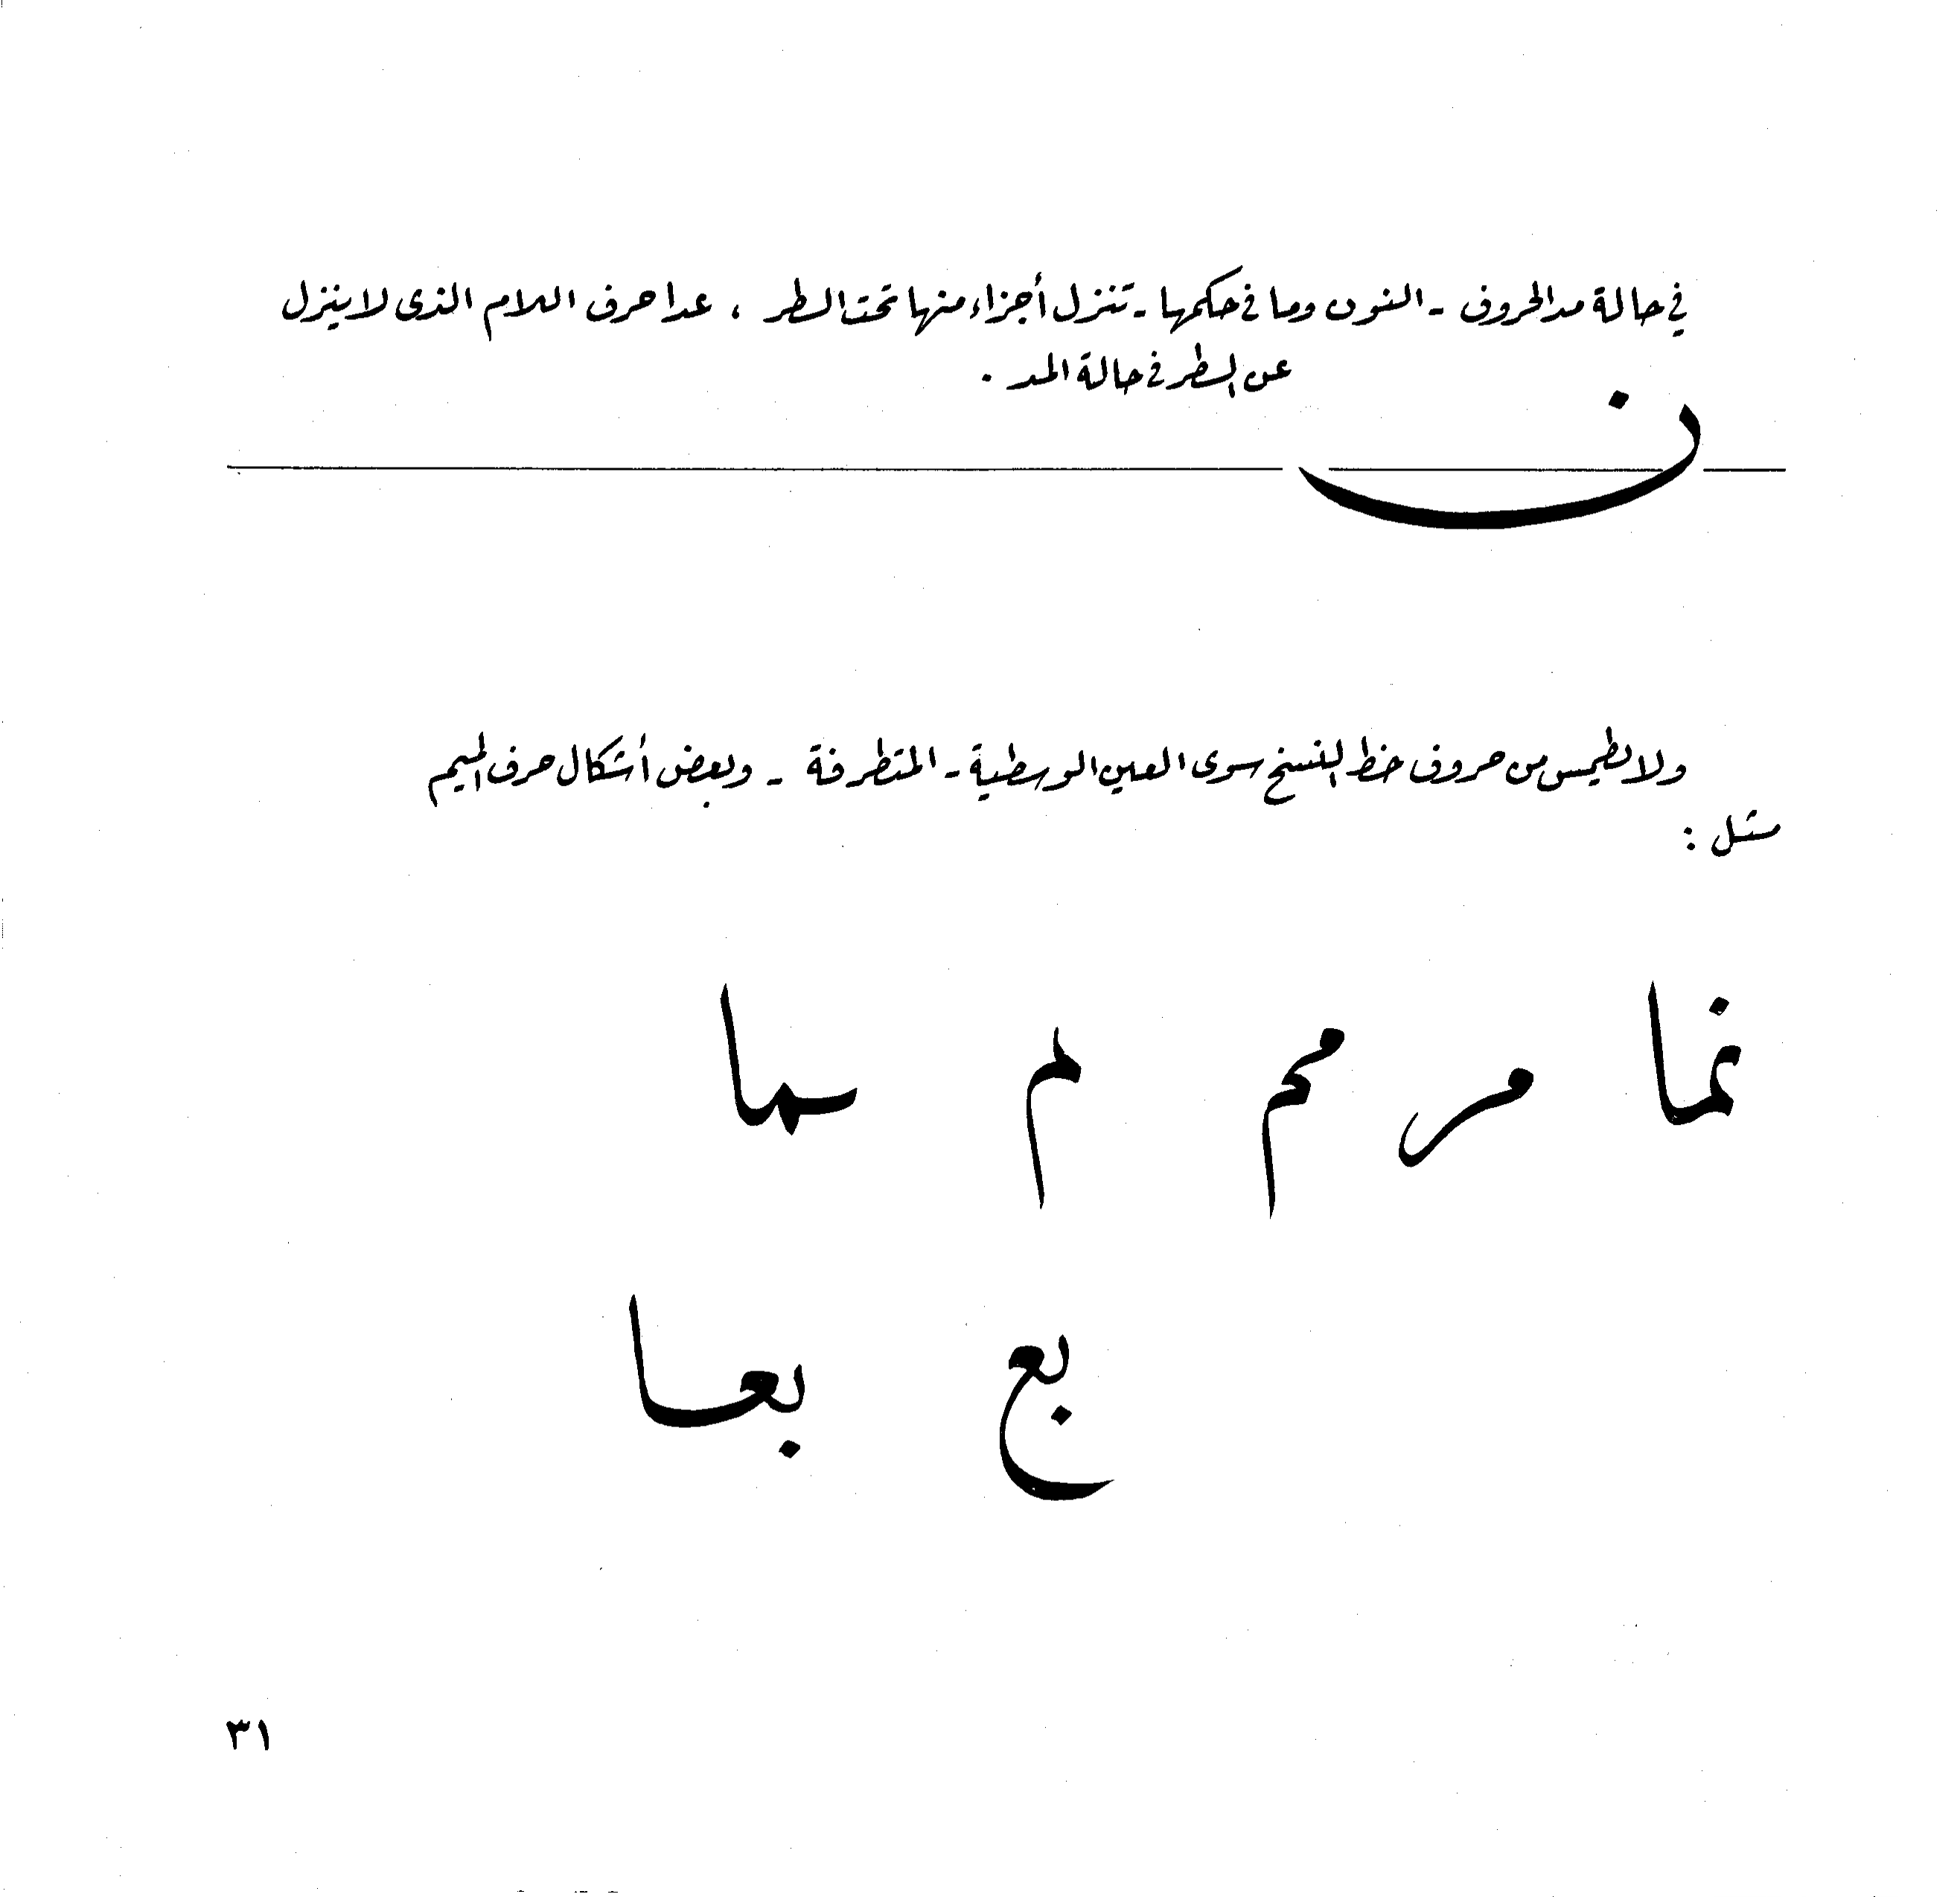 في حالة مد الحروف - النون وما في حكمها - تنزل أجزاء منها تحت السطر ، عدا حرف اللام الذى لا ينزل
عن السطر في حالة المد .
ن
ولا يطمس من حروف خط النسخ سوى العين الوسطية - المتطرفة - وبعض أشكال حرف الميم
مثل :
نما مر محم لم سها
بع بعا
٣١